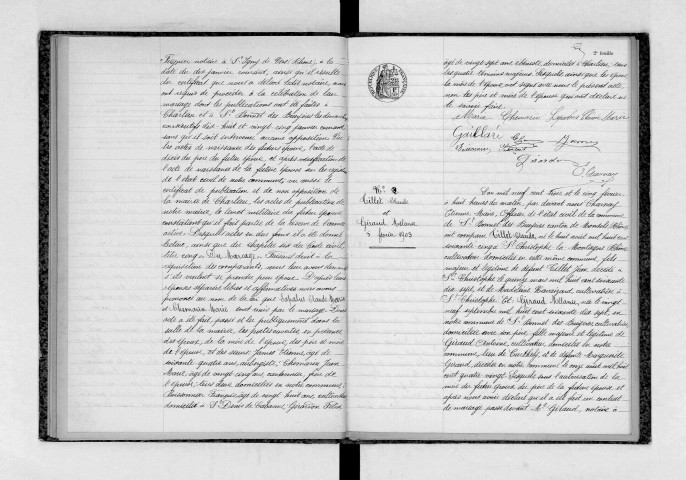 notaire à St Igny de Vers Rhône, à la
date du dix janvier courant, ainsi qu'il résulte
du certificat que nous a délivré ledit notaire, nous
ont requis de procéder à la célébration de leur
mariage dont les publications ont été faites à
Charlieu et à St Bonnet des Bruyères les dimanches
consécutifs dix huit et vingt cinq janvier courant
sans qu'il soit intervenu aucune opposition. Vu
les actes de naissance des futurs époux, l'acte de
décès du père du futur époux, et après vérification de
l'acte de naissance de la future épouse sur les registres
de l'état civil de notre commune, vu aussi le
certificat de publication et de non opposition de
la mairie de Charlieu, les actes de publications de
notre mairie, le livret militaire du futur époux
constatant qu'il fait partie de la réserve de l'armée
active. Desquels actes en due forme il a été donné
lecture, ainsi que du chapitre six du Code civil,
titre cinq, Du Mariage. Faisant droit à la
réquisition des comparants, nous leur avons demandé
s'ils veulent se prendre pour époux. D'après leurs
réponses séparées libres et affirmatives nous avons
prononcé au nom de la loi que Claude Marie
et Chemarin Marie sont unis par le mariage. Dont
acte a été fait, passé et lu publiquement dans la
salle de la mairie, les portes ouvertes en présence
des époux, de la mère de l'époux, des père et mère
de l'épouse, et des sieurs James Etienne, âgé de
soixante quatre ans, aubergiste; Chemarin Jean
Marie, âgé de vingt cinq ans, cantonnier frère de
l'épouse, tous deux domiciliés en notre commune;
François, âgé de vingt huit ans, cultivateur
domicilié à St Denis de Cabanne,
2e feuille
âgé de vingt sept ans, domicilié à Charlieu, tous
les quatre témoins majeurs. Lesquels, ainsi que les époux
la mère de l'époux, ont signé avec nous le présent acte,
non les père et mère de l'épouse qui ont déclaré ne
le savoir faire.
Marie Chemarin
Gaillard
No 3
Tillet Claude
et
Giraud Mélanie
5 février 1903
L'an mil neuf cent trois et le cinq février
à huit heures du matin, par devant nous
Etienne Marie, Officier de l'état civil de la commune
de St Bonnet des Bruyères canton de Monsols Rhône
ont comparu Tillet Claude, né le huit avril mil huit cent
soixante cinq à St Christophe la Montagne Rhône
cultivateur domicilié en cette même commune, fils
majeur et légitime de défunt Tillet Jean décédé à
St Christophe le quinze mars mil huit cent soixante
dix sept, et de Madeleine cultivatrice à
St Christophe. Et Giraud Mélanie, née le vingt
neuf septembre mil huit cent soixante dix sept, en
notre commune de St Bonnet des Bruyères, cultivatrice
domiciliée avec son père, fille majeure et légitime de
Giraud Antoine, cultivateur domicilié en notre
commune, et de défunte Marguerite
Giraud, décédée en notre commune le onze mai mil huit
cent quatre vingt. Lesquels sous l'autorisation de la
mère du futur époux, du père de la future épouse et
après nous avoir déclaré qu'il a été fait un contrat
de mariage passé devant Me Giraud, notaire à